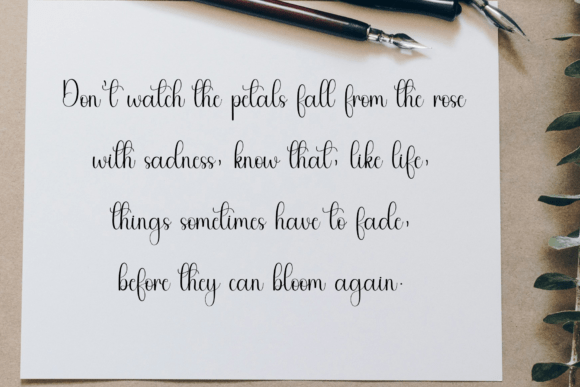 Don't watch the petals fall from the rose
with sadness, know that, like life,
things sometimes have to fade,
before they can bloom again.